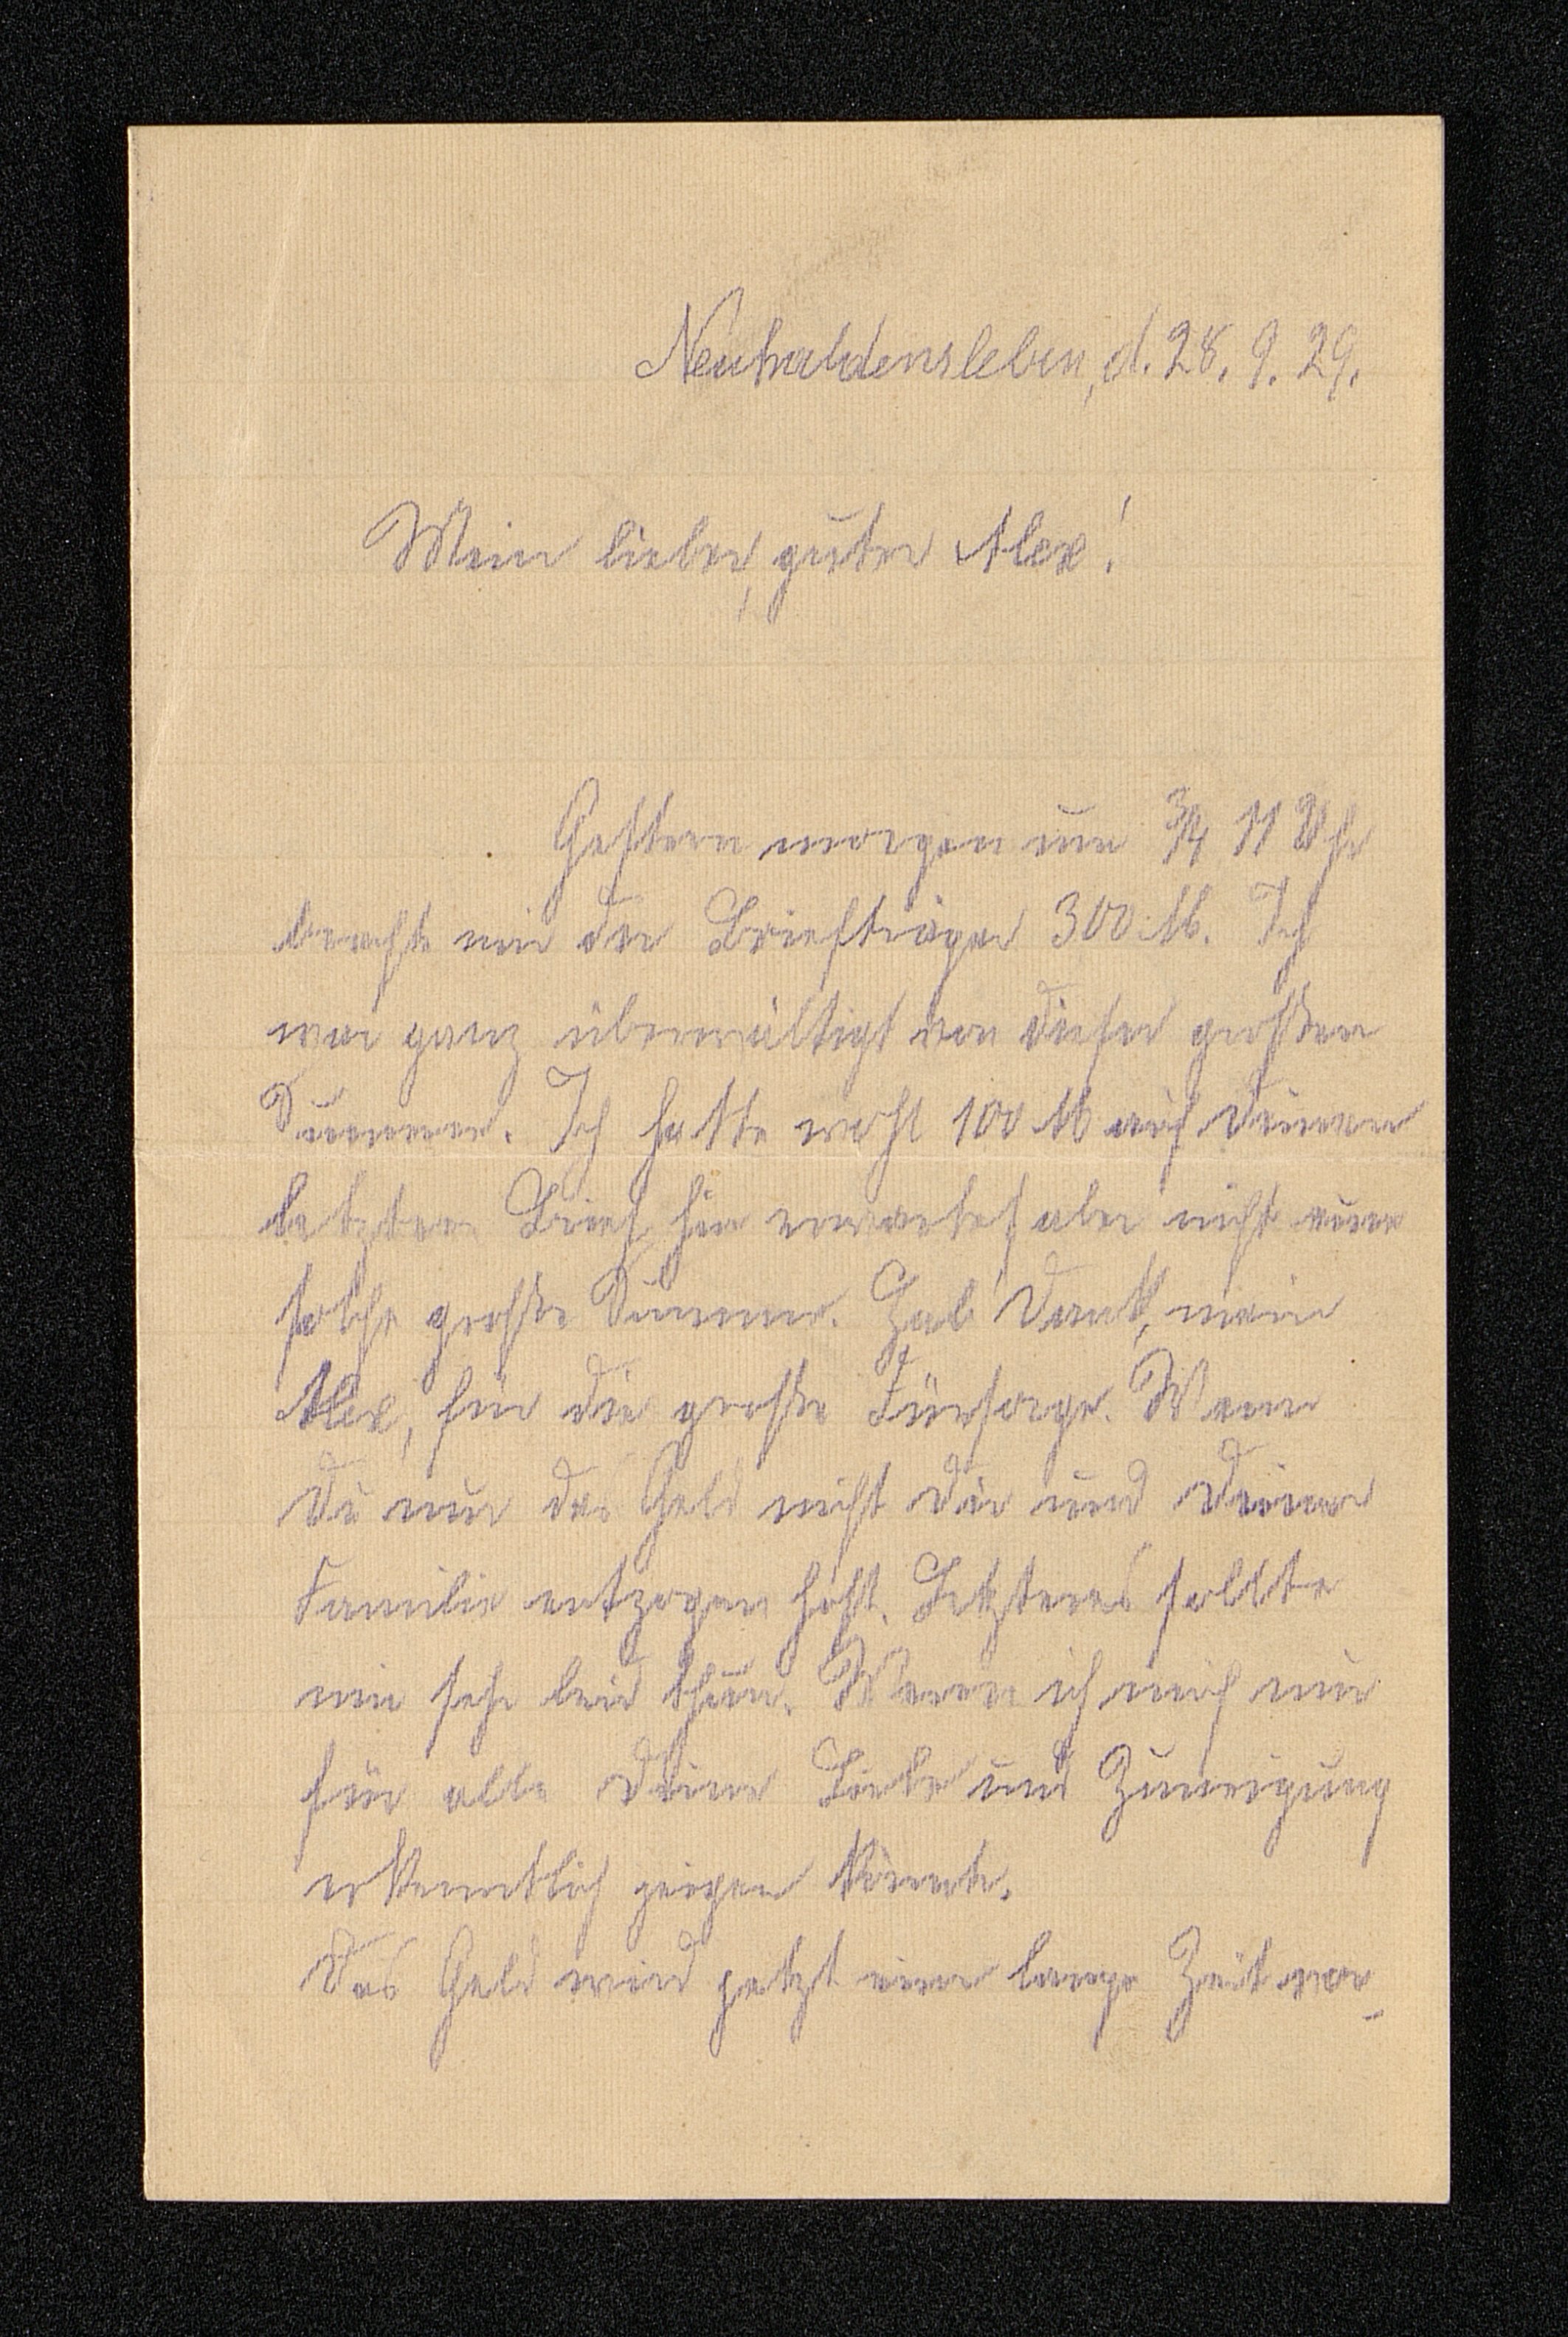 Neuhaldensleben, d. 28. 9. 29.
Mein lieber, guter Alex!
Gestern morgen um 3/4 11 Uhr
brachte mir der Briefträger 300 M. Ich
war ganz überwältigt von dieser großen
Summe. Ich hatte wohl 100 M auf Deinen
letzten Brief hin erwartet aber nicht eine
solche große Summe. Hab Dank, mein
Alex, für die große Fürsorge. Wenn
Du nur das Geld nicht Dir und Deiner
Familie entzogen hast. Letzteres sollte
mir sehr leid thun. Wenn ich mich nur
für alle Deine Liebe und Zuneigung
erkenntlich zeigen könnte.
Das Geld wird jetzt eine lange Zeit vor-